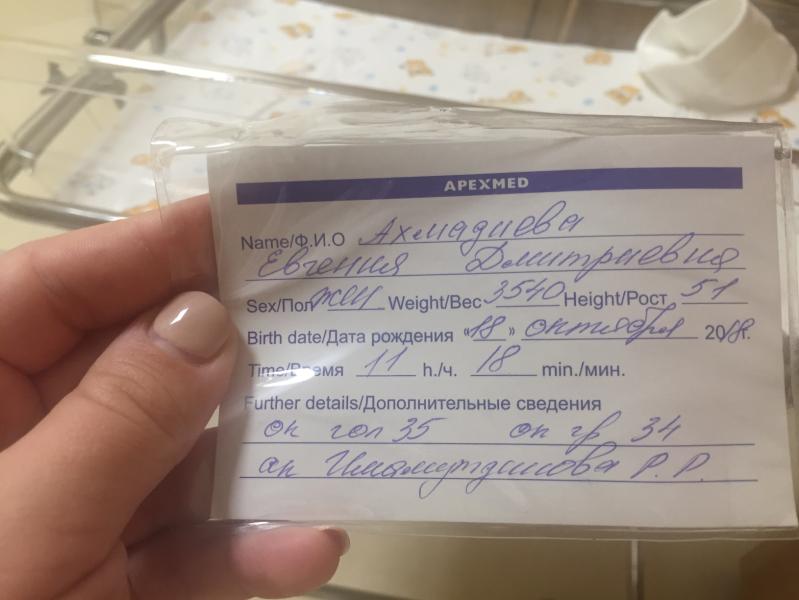 APEXMED
Name/Ф.И.О Ахмадиева
Евгения Дмитриевна
Sex/Пол жен Weight/Вес 3540 Height/Рост 51
Birth date/Дата рождения «18» октября 2018г.
Time/Время 11 h./ч. 18 min./мин.
Further details/Дополнительные сведения
ок гол 35 ок гр 34
ак Имамутдинова Р. Р.